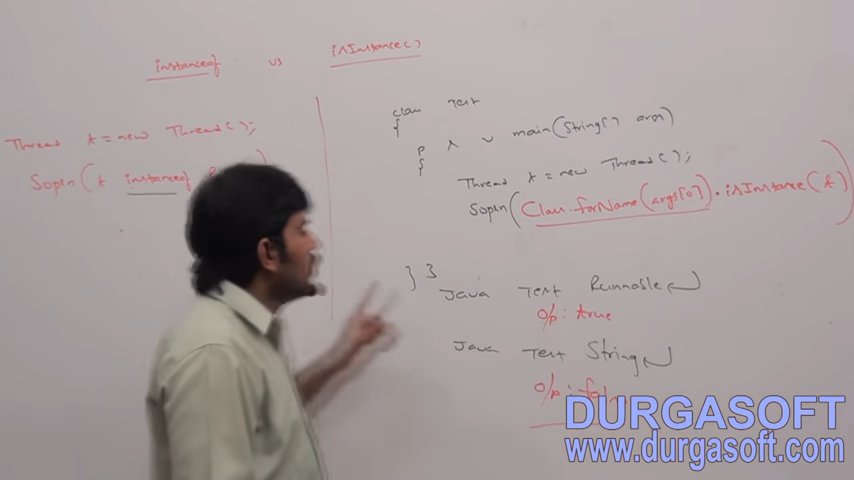 instanceof vs isInstance()
Thread t = new Thread();
Sopln(t instanceof
class Test
{
p s v main(String[] args)
{
Thread t = new Thread();
Sopln(Class.forName(args[0]).isInstance(t)
} }
Java Test Runnable
O/p: true
Java Test String
O/p: false
DURGASOFT
www.durgasoft.com